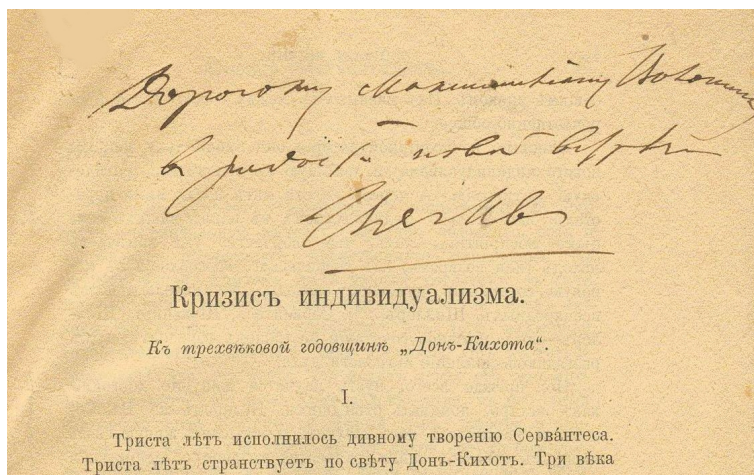 Дорогому Максимилiану Волошину
в радость новой встрѣчи
Вяч Ив
Кризисъ индивидуализма.
Къ трехвѣковой годовщинѣ „Донъ-Кихота“.
I.
Триста лѣтъ исполнилось дивному творенію Серва́нтеса.
Триста лѣтъ странствуетъ по свѣту Донъ-Кихотъ. Три вѣка